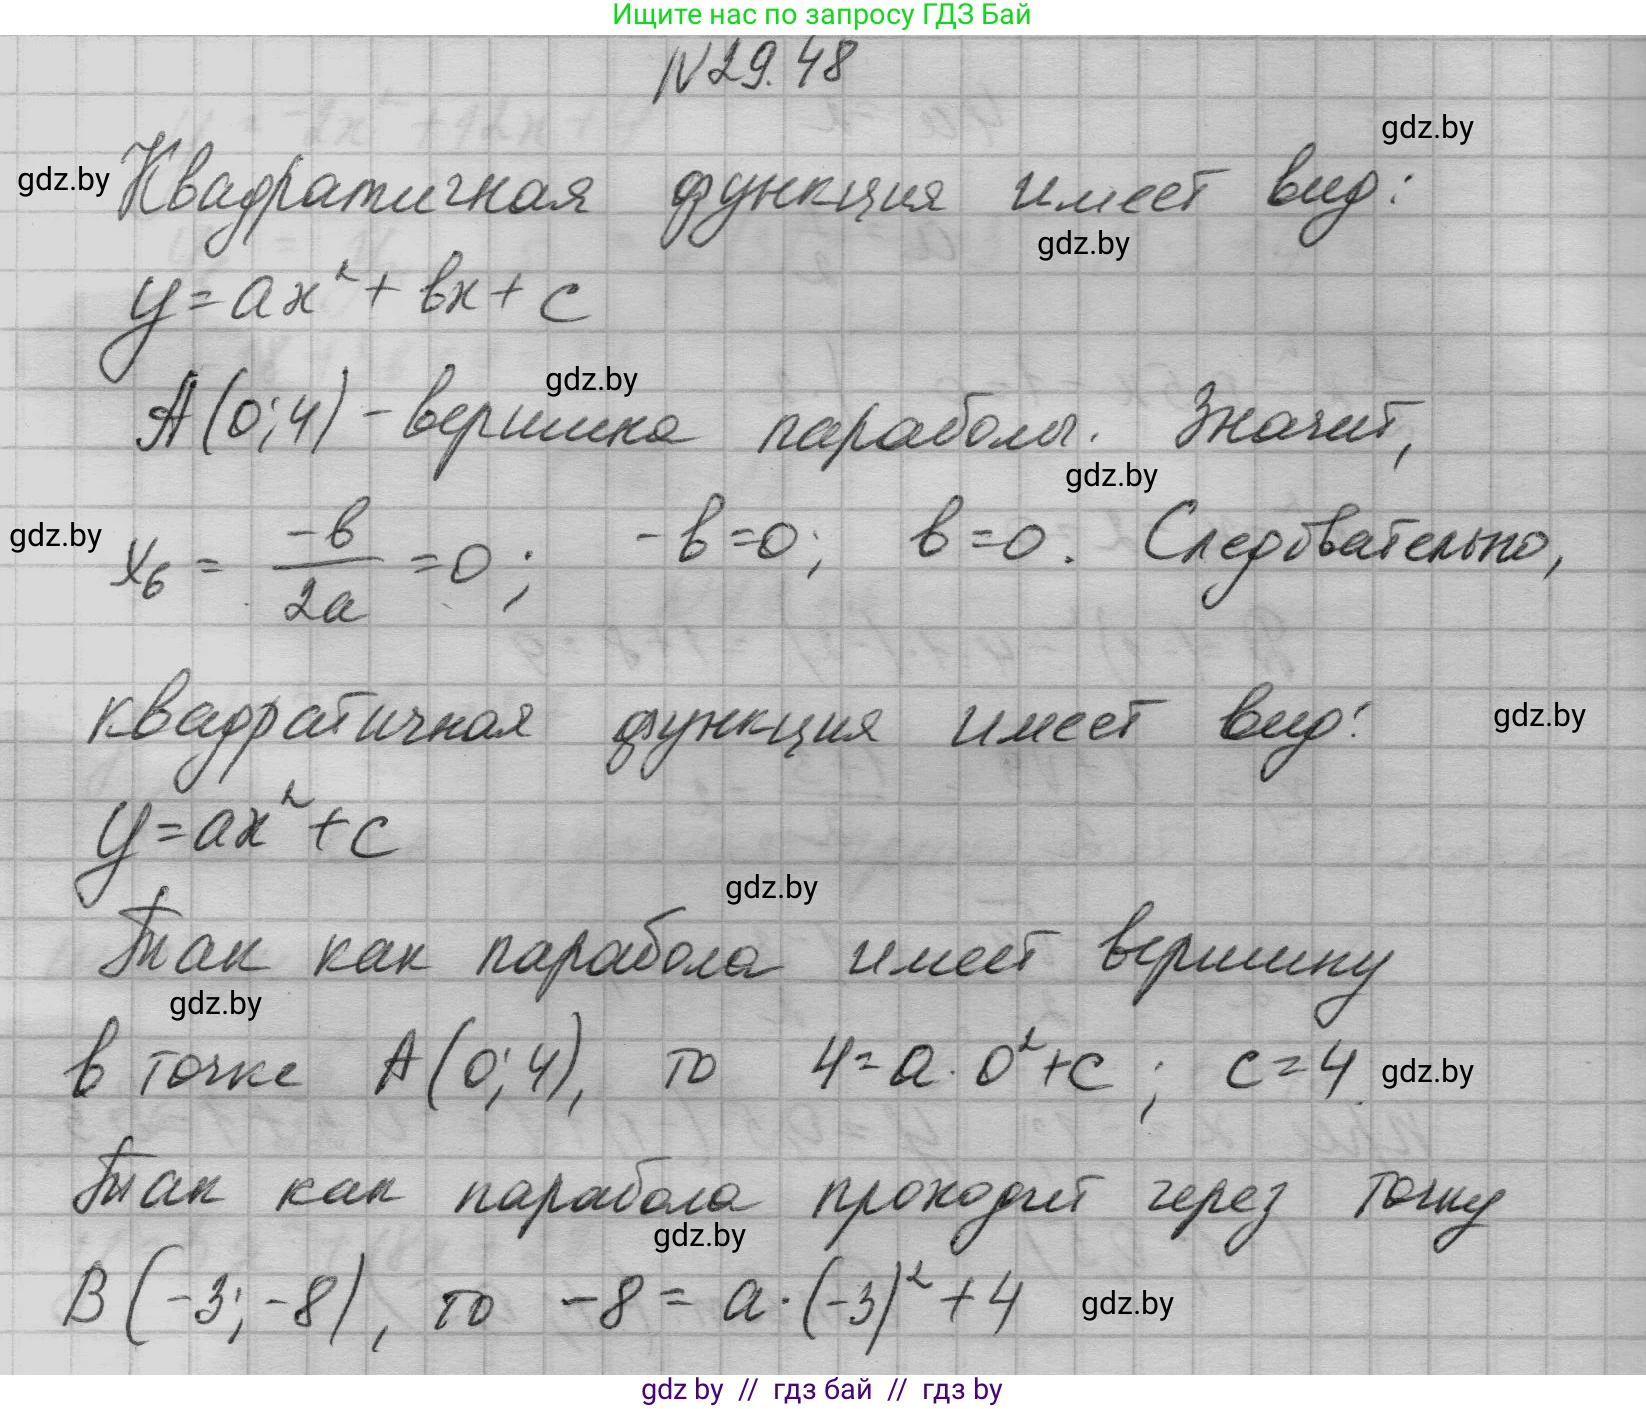 Ищите нас по запросу ГДЗ Бай
№29.48
gdz.by
gdz.by Квадратичная функция имеет вид:
gdz.by
y=ax²+bx+c
gdz.by
A(0;4) - вершина параболы. Значит,
gdz.by
gdz.by x₆ = -b/2a = 0; -b=0; b=0. Следовательно,
квадратичная функция имеет вид: gdz.by
y=ax²+c
gdz.by
Так как парабола имеет вершину
gdz.by
в точке A(0;4), то 4=a·0²+c; c=4. gdz.by
Так как парабола проходит через точку
gdz.by
B(-3;-8), то -8=a·(-3)²+4 gdz.by
gdz by // гдз бай // гдз by